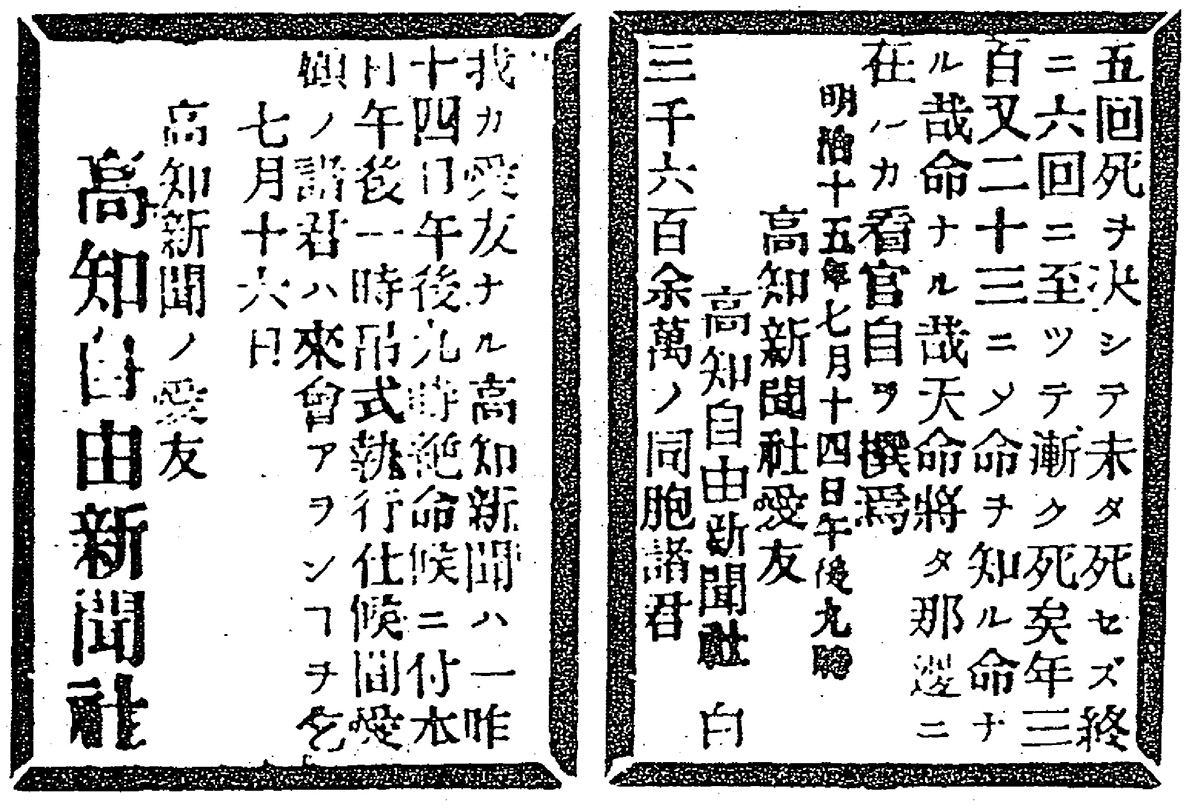 五回死ヲ决シテ未タ死セズ終
ニ六回ニ至ツテ漸ク死矣年三
百又二十三ニシ命ヲ知ル命ナ
ル哉命ナル哉天命將タ那邊ニ
在ハカ看官自ヲ撰爲
明治十五年七月十四日午後九時
高知新聞社愛友
高知自由新聞社 白
三千六百余萬ノ同胞諸君
我カ愛友ナル高知新聞ハ一昨
十四日午後九時絶命候ニ付本
日午後一時吊式執行仕候間愛
顧ノ諸君ハ來會アヲンヿヲ乞
七月十六日
高知新聞ノ愛友
高知自由新聞社